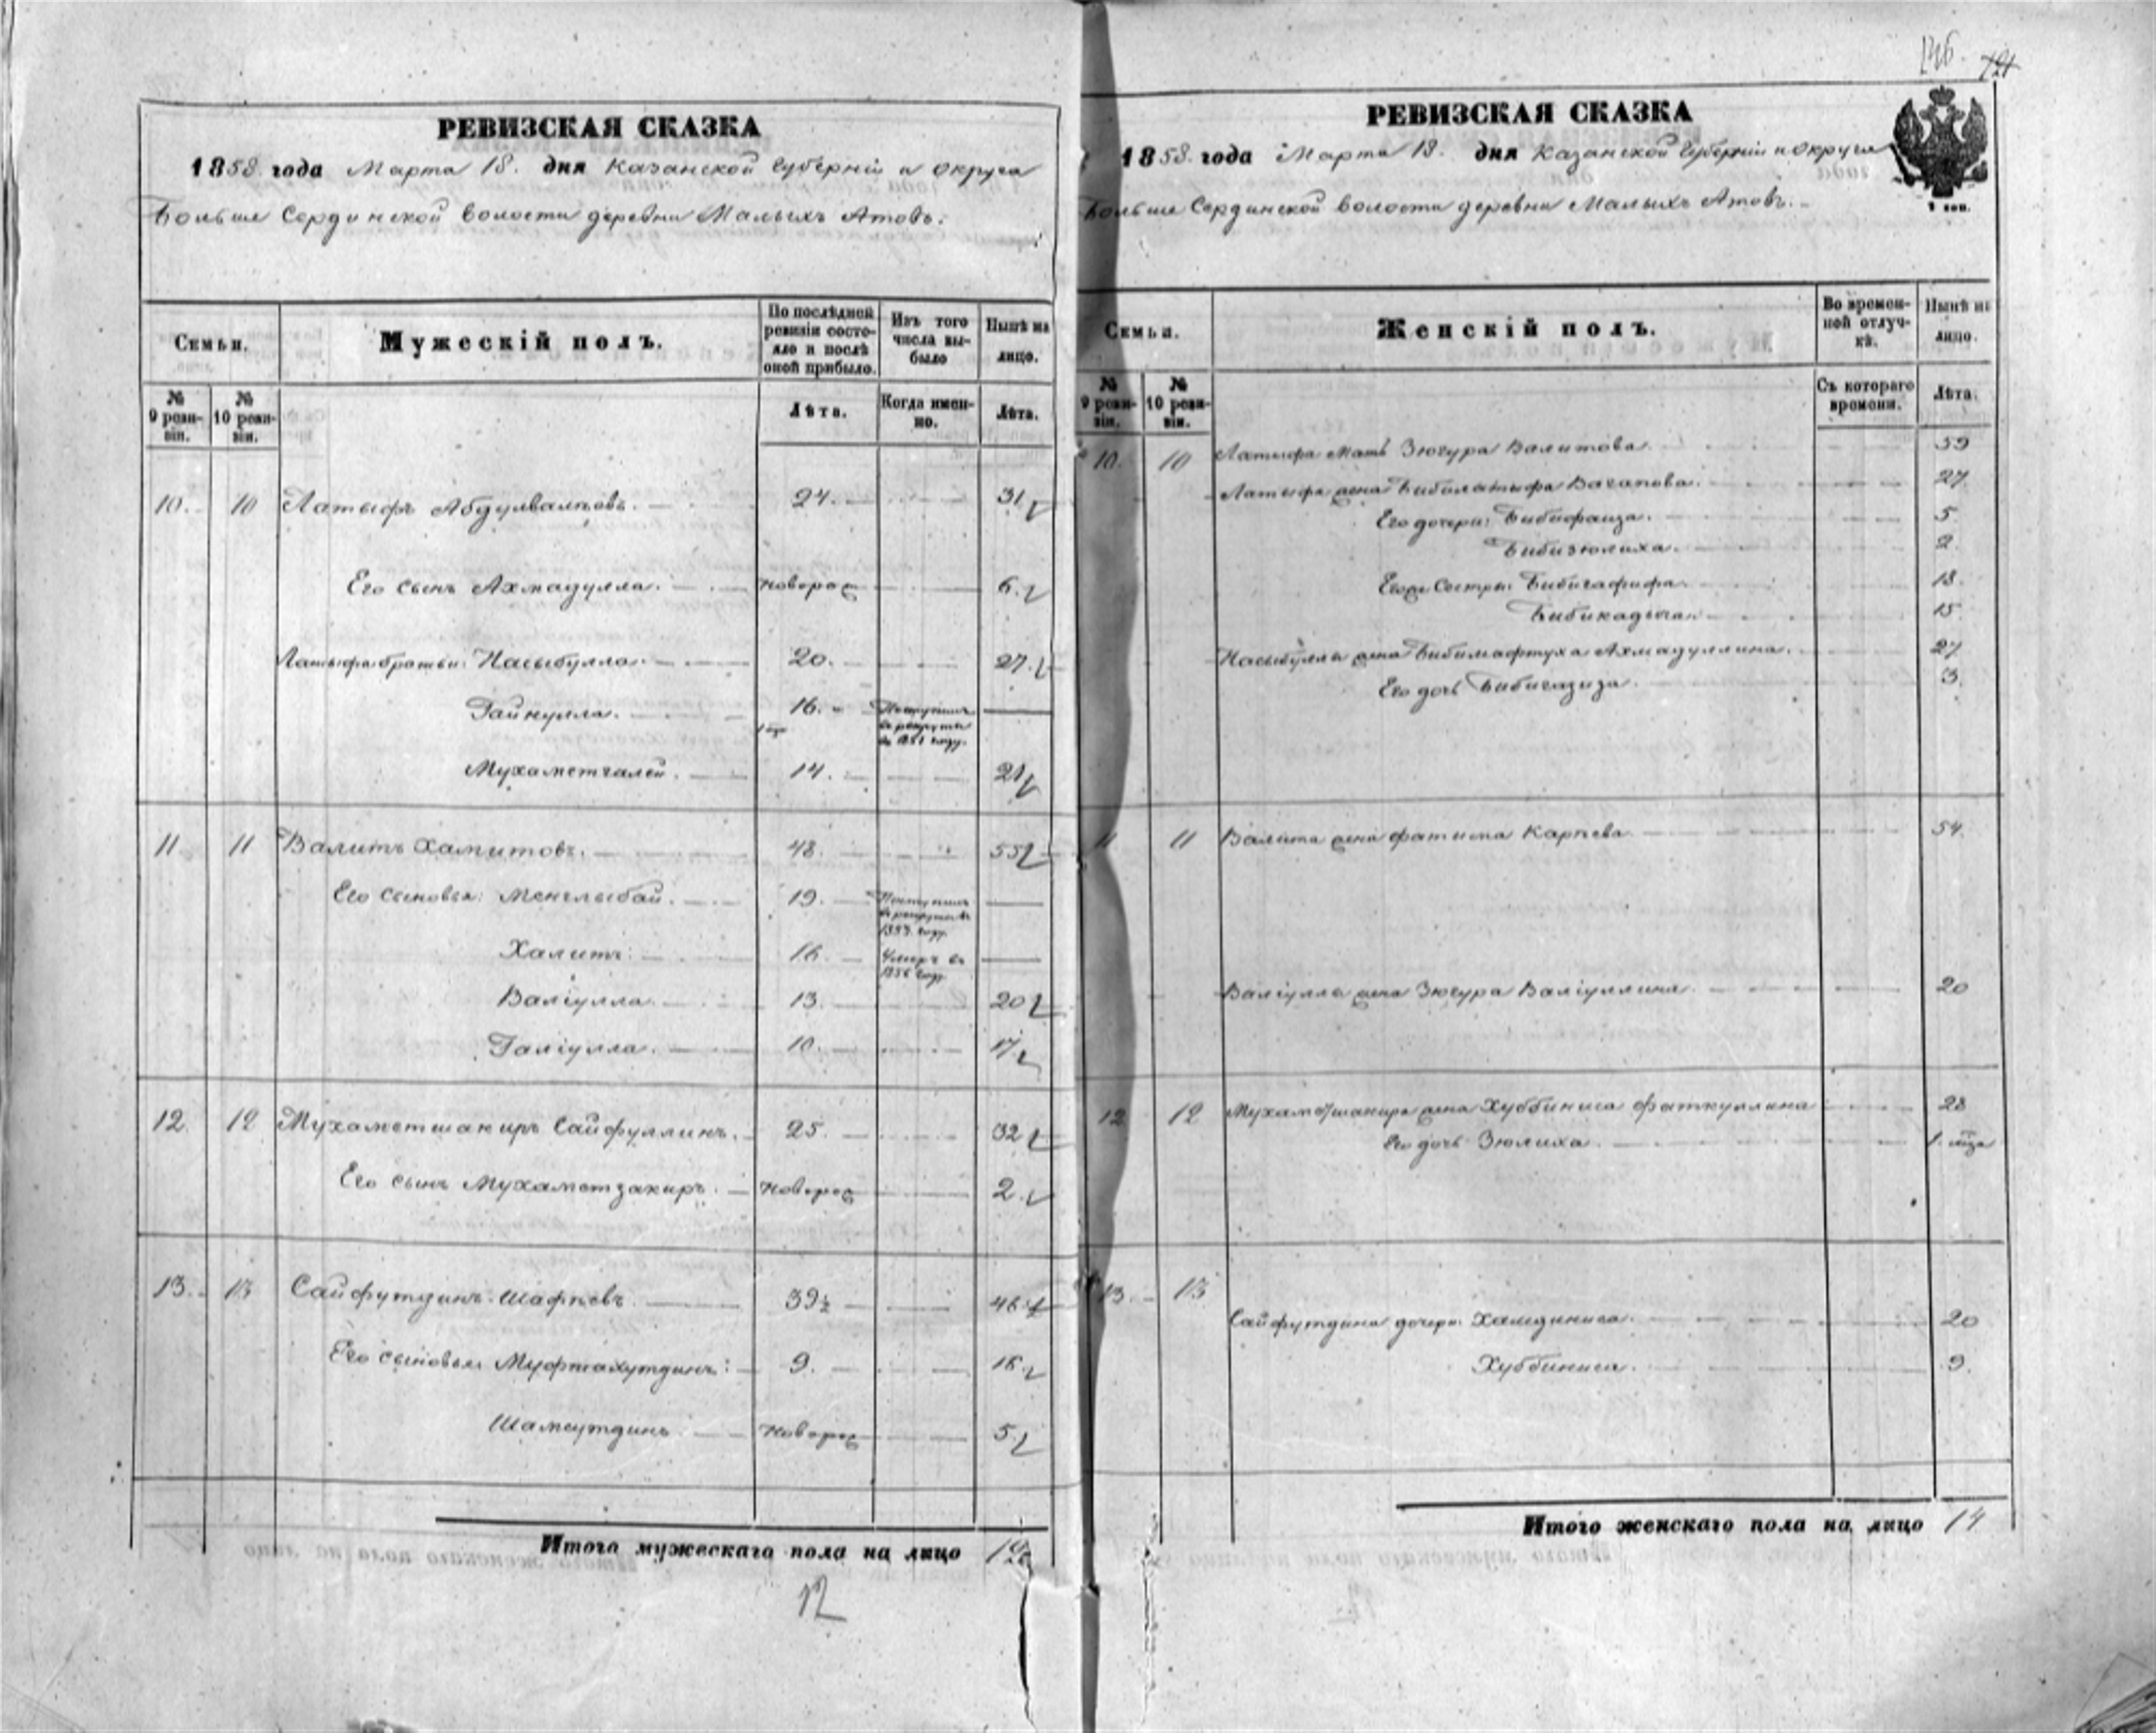 146. 121
РЕВИЗСКАЯ СКАЗКА
1858 года Марта 18. дня Казанской Губерніи и округа
Больше Сердинской волости деревни Малыхъ Атовъ.
Семьи.
Мужескій полъ.
По послѣдней ревизіи состояло и послѣ оной прибыло.
Изъ того числа выбыло
Нынѣ на лицо.
№ 9 ревизіи.
№ 10 ревизіи.
Лѣта.
Когда именно.
Лѣта.
10. 10 Латыфъ Абдулвалѣовъ. 24. 31
Его сынъ Ахмадулла. новорож 6.
Латыфа братья: Насыбулла. 20. 27.
Гайнулла. 16. Поступилъ въ рекруты въ году.
Мухаметгалей. 14. 21
11 11 Валитъ Хамитовъ. 48. 55
Его сыновья: Менглыбай. 19. Поступилъ въ рекруты въ 1853. году.
Халитъ 16. Умеръ въ 1856 году
Валіулла. 13. 20
Галіулла. 10. 17
12. 12 Мухаметшакиръ Сайфуллинъ. 25. 32
Его сынъ Мухаметзакиръ. новорож 2.
13. 13 Сайфутдинъ Шафѣевъ 39½ 46½
Его сыновья Муфтахутдинъ: 9. 16.
Шамсутдинъ новорож 5
Итого мужескаго пола на лицо 12
12
РЕВИЗСКАЯ СКАЗКА
1858. года Марта 18. дня Казанской Губерніи и округа
Больше Сердинской волости деревни Малыхъ Атовъ.
Семьи.
Женскій полъ.
Во временной отлучкѣ.
Нынѣ на лицо.
№ 9 ревизіи.
№ 10 ревизіи.
Съ котораго времени.
Лѣта.
10. 10 Латыфа мать Зюгура Валитова 59
Латыфа жена Бибилатыфа Вагапова. 27
Его дочери: Бибифаиза. 5
Бибизюлиха. 2
Его же Сестры: Бибигафифа 18.
Бибикадыча 15
Насыбуллы жена Бибимафтуха Ахмадуллина. 27
Его дочь Бибигазиза. 3.
11 11 Валита жена Фатима Карѣева 54.
Валіуллы жена Зюгура Валіуллина. 20
12 12 Мухаметшакира жена Хуббиниса Фаткуллина 28
Его дочь Зюлиха. 1. мѣца
13. 13
Сайфутдина дочери: Хамдиниса. 20
Хуббиниса. 9.
Итого женскаго пола на лицо 14